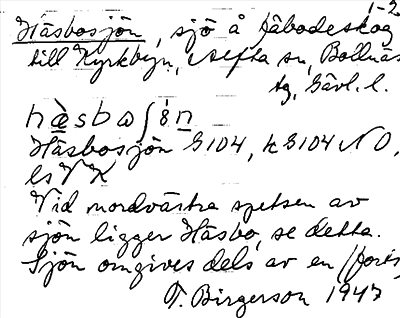 1-2
Häsbosjön, sjö å fäbodeskog
till Kyrkbyn, Alfta sn, Bollnäs
tg, Gävl. l.
Häsbosjön G104, k G104 NO,
ls V K
Vid nordvästra spetsen av
sjön ligger Häsbo, se detta.
Sjön omgives dels av en (föris
T. Birgerson 1947